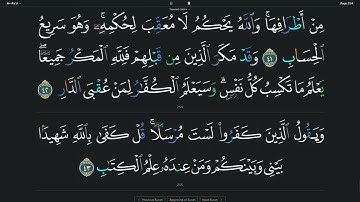 Ar-Ra'd
Page 254
مِنْ أَطْرَافِهَا ۚ وَاللَّهُ يَحْكُمُ لَا مُعَقِّبَ لِحُكْمِهِ ۚ وَهُوَ سَرِيعُ
الْحِسَابِ ٤١ وَقَدْ مَكَرَ الَّذِينَ مِن قَبْلِهِمْ فَلِلَّهِ الْمَكْرُ جَمِيعًا ۖ
يَعْلَمُ مَا تَكْسِبُ كُلُّ نَفْسٍ ۗ وَسَيَعْلَمُ الْكُفَّارُ لِمَنْ عُقْبَى الدَّارِ ٤٢
وَيَقُولُ الَّذِينَ كَفَرُوا لَسْتَ مُرْسَلًا ۚ قُلْ كَفَىٰ بِاللَّهِ شَهِيدًا
بَيْنِي وَبَيْنَكُمْ وَمَنْ عِندَهُ عِلْمُ الْكِتَابِ ٤٣
Previous Surah Beginning of Surah Next Surah